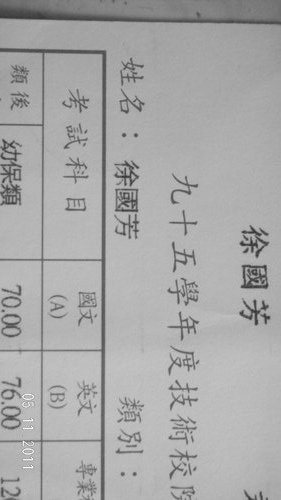 徐國芳
九十五學年度技術校院
姓名：徐國芳 類別：
考試科目 國文(A) 英文(B) 專業
類後 幼保類 70.00 76.00 12
05 11 2011